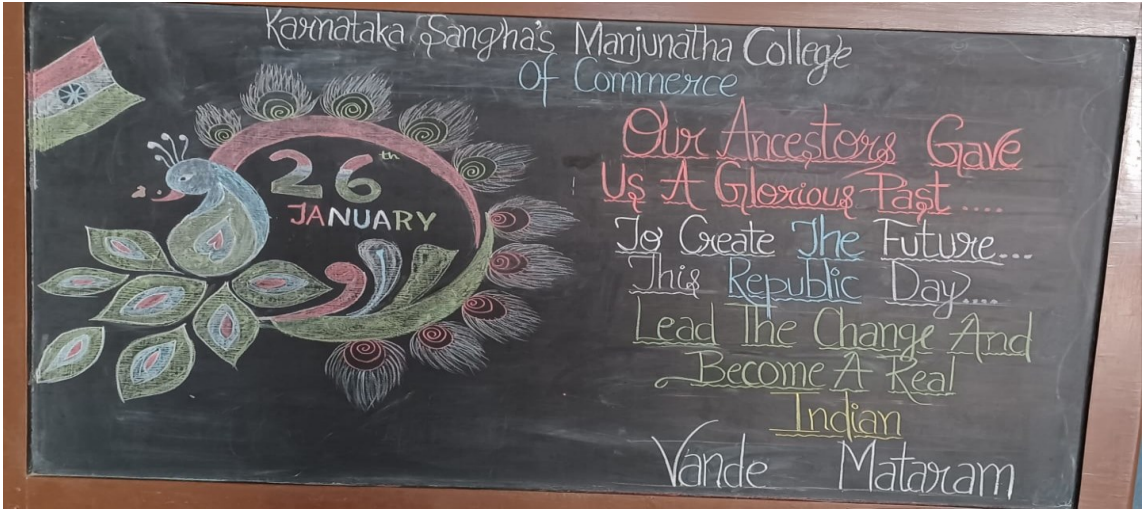 Karnataka Sangha's Manjunatha College
Of Commerce
26th
JANUARY
Our Ancestors Gave
Us A Glorious Past ....
To Create The Future...
This Republic Day....
Lead The Change And
Become A Real
Indian
Vande Mataram